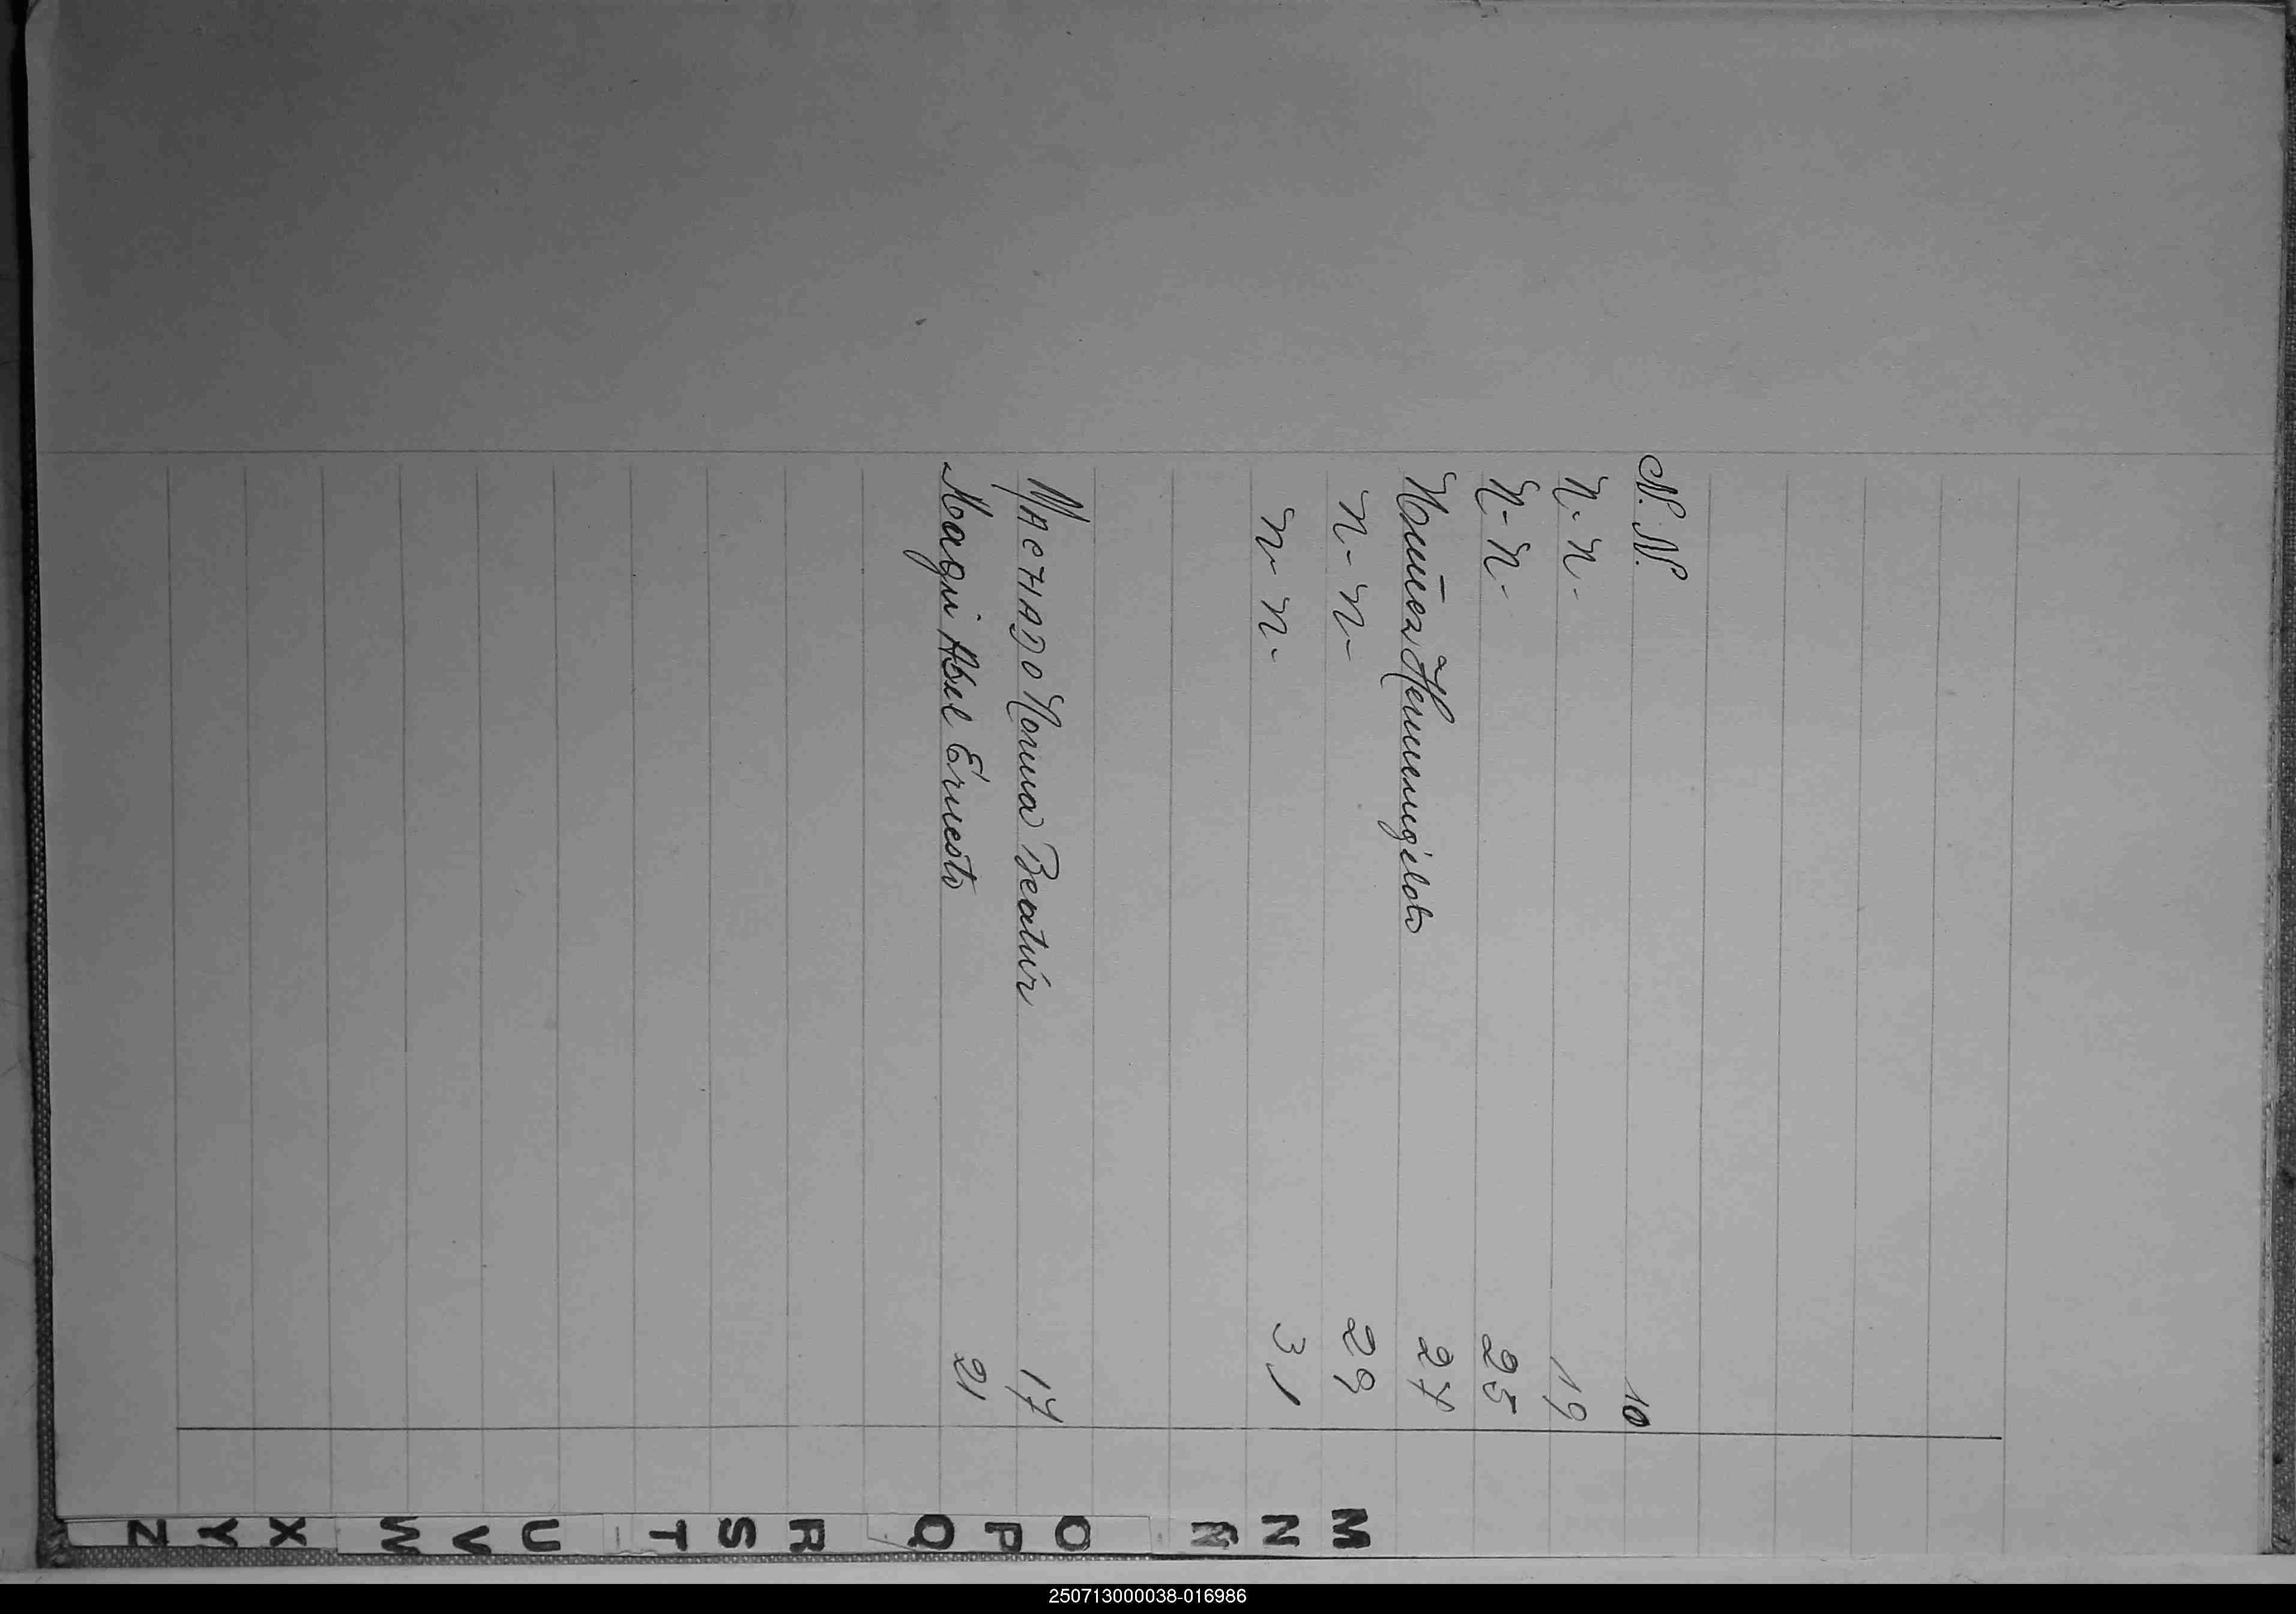 N. N. 10
N. N. 19
N-N- 25
Hermenegildo 27
N-N- 29
N- N- 31
MACHADO Norma Beatriz 17
Maqui Abel Ernesto 21
M
N
Ñ
O
P
Q
R
S
T
U
V
W
X
Y
Z
250713000038-016986